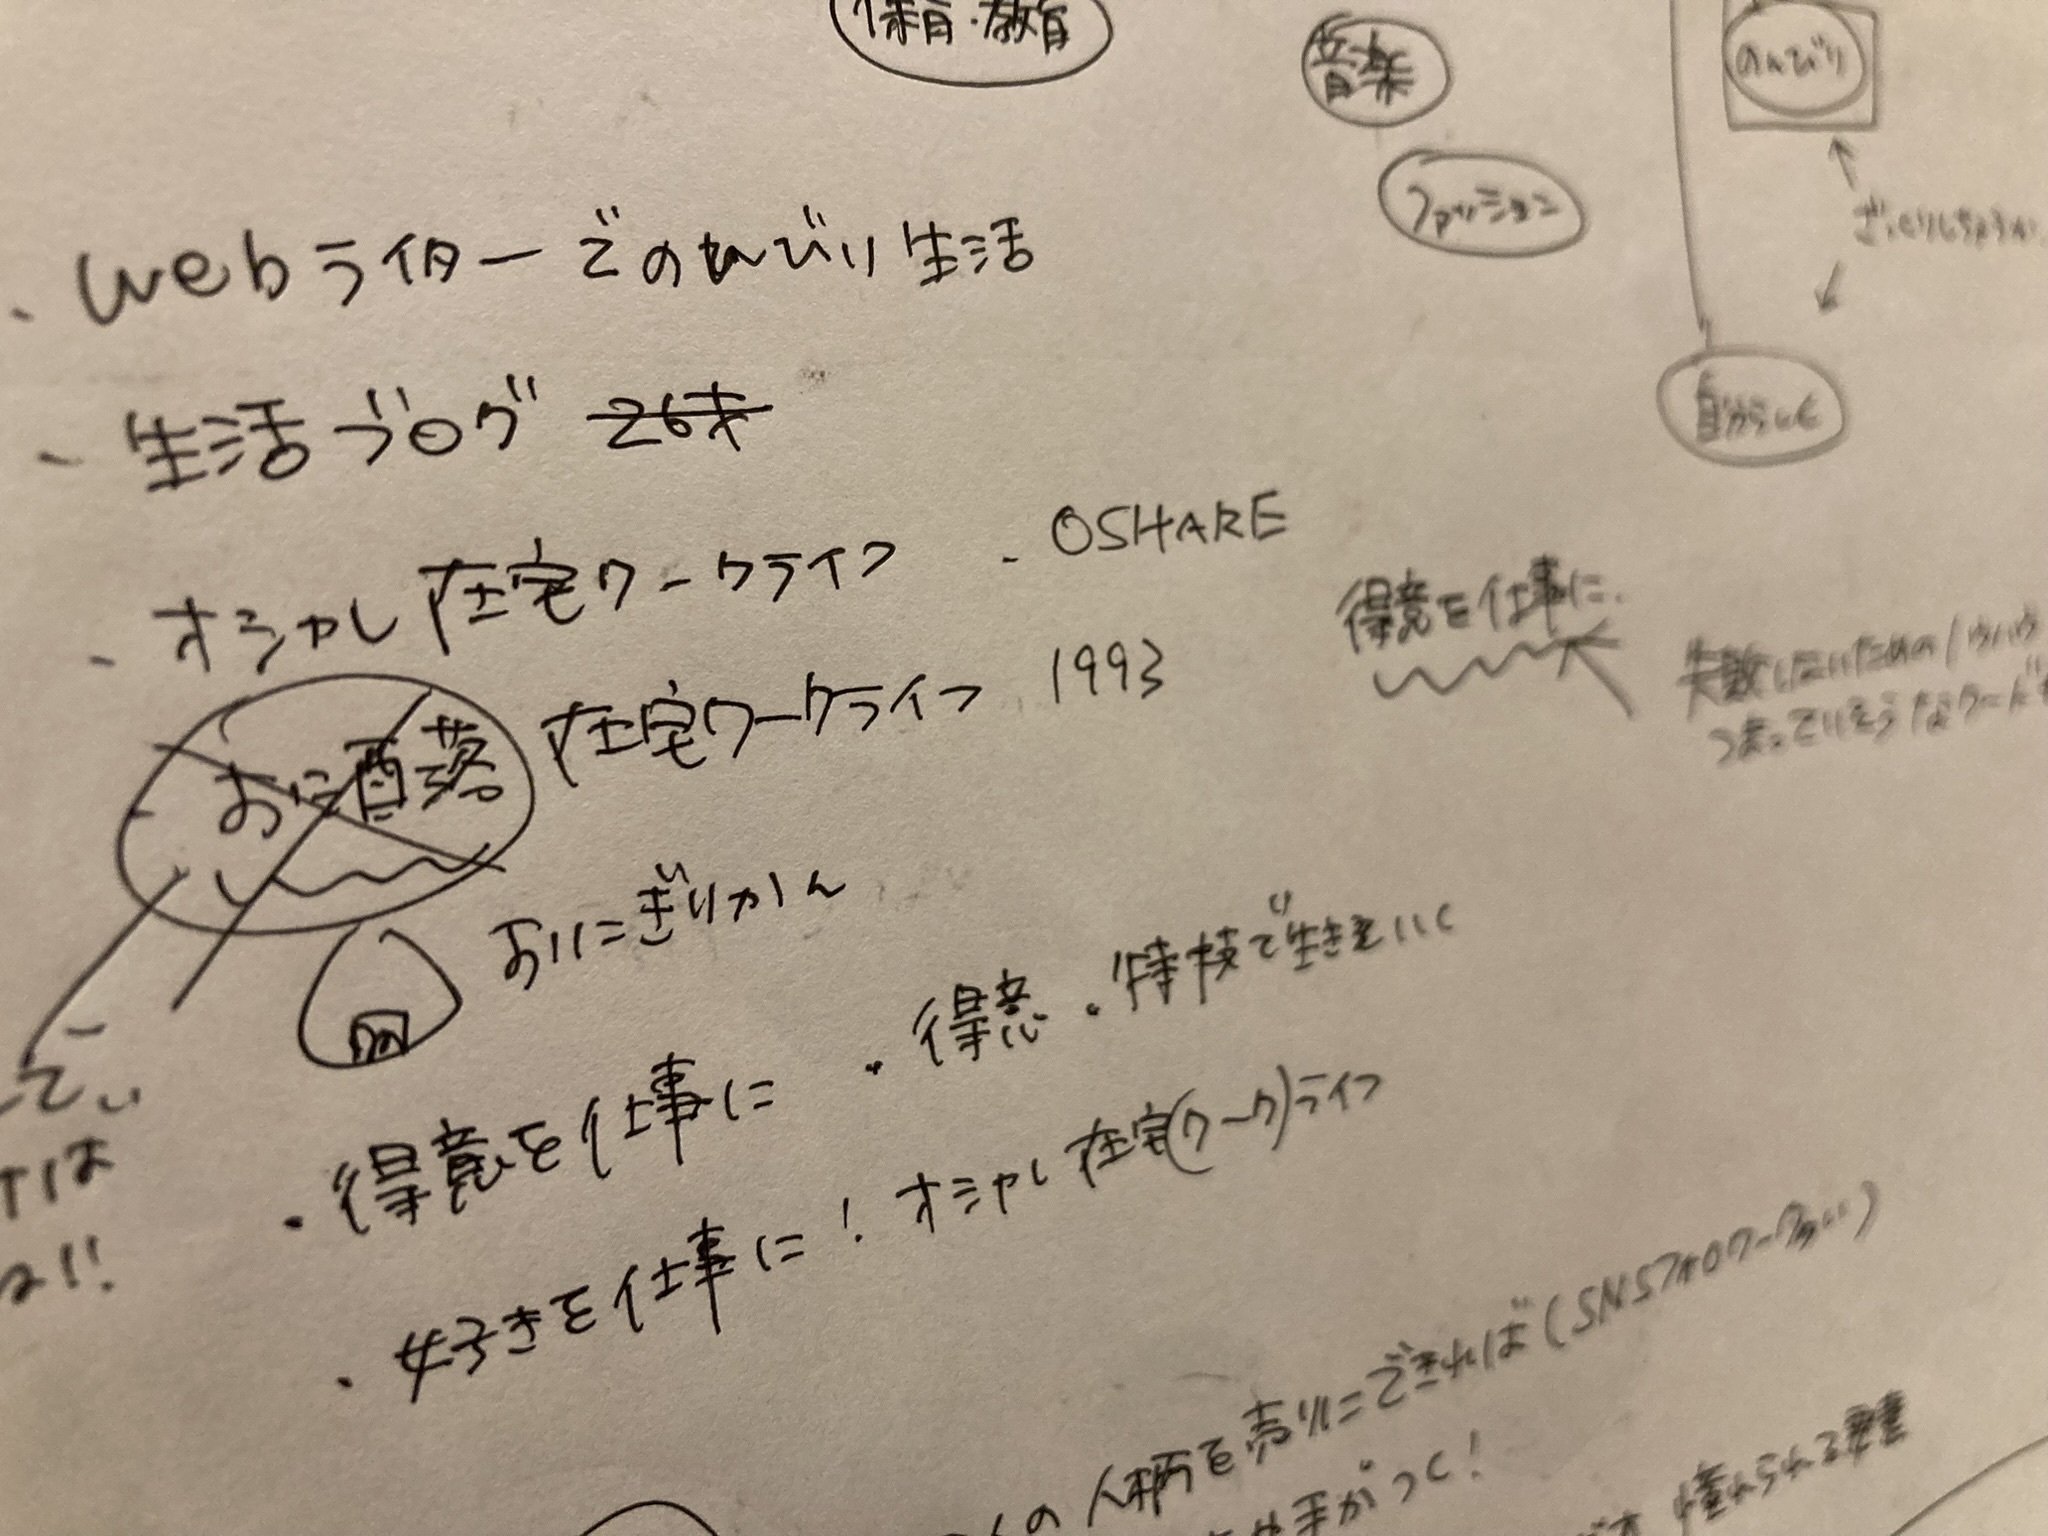 保育・教育
音楽
のんびり
ファッション
・webライターでのんびり生活
自分らしく
・生活ブログ 26才
・オシャレ在宅ワークライフ
・OSHARE
得意を仕事に.
お洒落 在宅ワークライフ 1993
失敗しないための
つまっていそうなワード
おにぎりかん
・得意・特技で生きていく
・得意を仕事に
・好きを仕事に! オシャレ在宅(ワーク)ライフ
の人柄を売りにできれば(SNSフォロワー
手がつく!
憧れられる要素